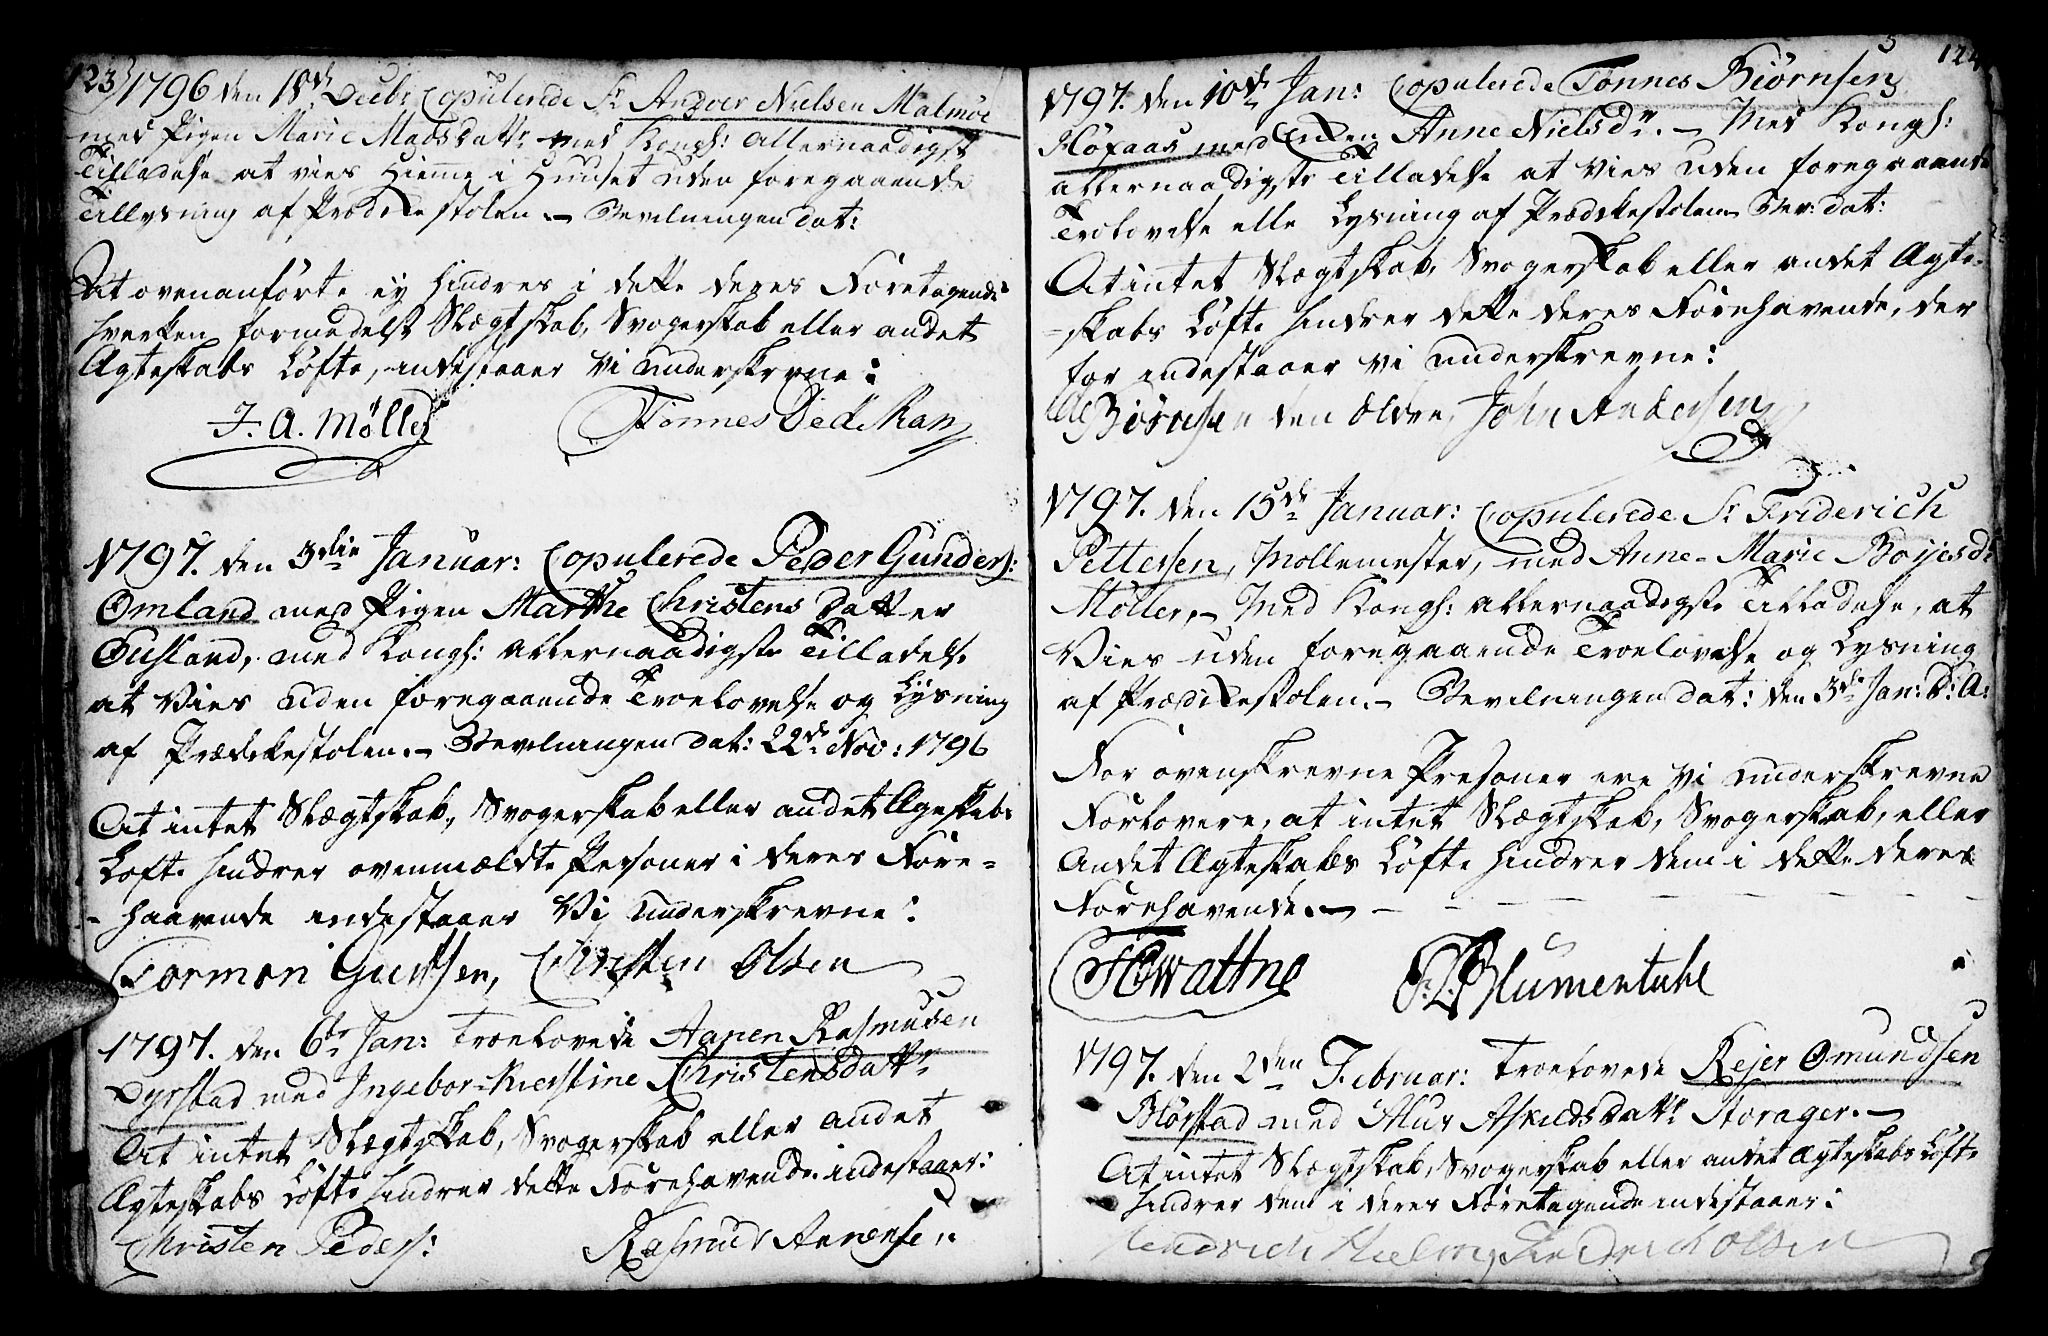 123
1796 den 18de Decbr Copulerede Sr Andver Nielsen Malmöe
med Pigen Marie Madsdattr med Kongl: allernaadigst
Tilladelse at vies Hiemme i Huuset uden foregaaende
Tillysning af Prædikestolen. - Bevilningen dat:
At ovenanförte ey hindres i dette deres Foretagende
hverken formedelst Slægtskab, Svogerskab eller andet
Ægteskabs Löfte, indestaaer vi underskrevne:
J. A. Mölle Tönnes
1797. den 3die Januar: Copulerede Peder Gunders:
Omland med Pigen Marthe Christens Datter
Gusland, med Kongl: allernaadigste Tilladelse
at Vies uden foregaaende Troelovelse og Lysning
af Prædikestolen. - Bevilningen dat: 22de Nov: 1796
At intet Slægtskab, Svogerskab eller andet Ægeskabs
Löfte hindrer ovenmældte Personer i deres Fore=
- haavende indestaaer Vi underskrevne:
Tormon Guttsen, Christen Olsen
1797. den 6te Jan: Troelovede Aanen Rasmusen
Dyrstad med Ingebor Kierstine Christensdattr
At intet Slægtskab, Svogerskab eller andet
Ægteskabs Löfte hindrer dette Forehavende indestaaer:
Christen Peders: Rasmus Annensen
124
1797. den 10de Jan: Copulerede Tönnes Biörnsen
Flöfaas med Enken Anne Nielsdr. - Med Kongl:
allernaadigste Tilladelse at Vies uden foregaaende
Trolovelse elle Lysning af Prædikestolen Bev: dat:
At intet Slægtskab, Svogerskab eller andet Ægte-
-skabs Löfte hindrer dette deres Forehavende, der
for indestaaer vi underskrevne:
Ole Biörnsen den Eldre, John Andersen
1797. den 15de Januar: Copulerede Sr Friderich
Pettersen, Mollemester, med Anne-Marie Boyesdr
Möller, - Med Kongl: allernaadigste Tilladelse, at
Vies uden foregaaende Troelovelse og Lysning
af Prædikestolen. - Bevilningen dat: den 3de Jan: D: A:
For ovenskrevne Presoner ere vi underskrevne
Forlovere, at intet Slægtskab, Svogerskab, eller
andet Ægteskabs Löfte hindrer dem i dette deres
Forehavende. -
Wattne Blumentuhl
1797. den 2den Februar: Troelovede Rejer Omundsen
Blörstad med Alur Askildsdattr Storager. -
At intet Slægtskab, Svogerskab eller andet Ægteskabs Löfte
hindrer dem i deres Foretagende indestaaer:
Hendrich Hielm, Hendrich Olsen